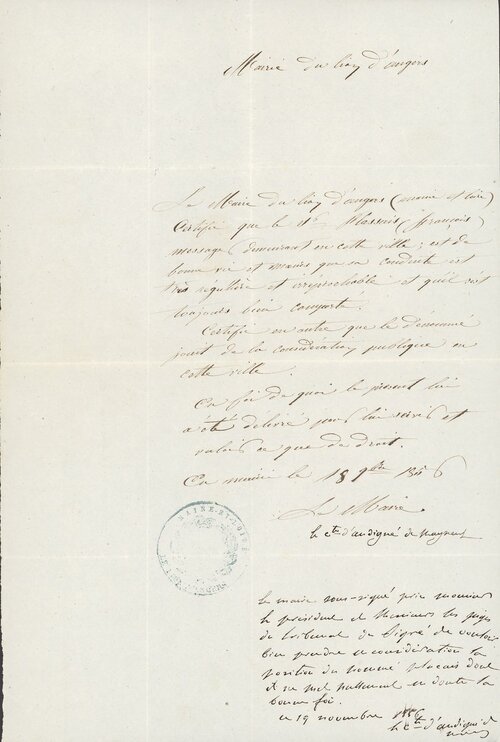 Mairie du Lion d'angers
Le Maire du Lion d'angers (maine et loire)
Certifie que le Sr Plassais (françois)
messager demeurant en cette ville, est de
bonne vie et mœurs que sa conduite est
très régulière et irréprochable et qu'il s'est
toujours bien comporté.
Certifie en outre que le dénommé
jouit de la considération publique en
cette ville.
En foi de quoi le présent lui
a été délivré pour lui servir et
valoir ce que de droit.
En mairie le 18 9bre 1856
Le Maire
le Cte d'andigné de
MAINE-ET-LOIRE
LE LION D'ANGERS
le maire sous-signé prie monsieur
le président et Messieurs les juges
du tribunal de Segré de vouloir
bien prendre en considération la
position du nommé placais dont
il ne met nullement en doute la
bonne foi.
ce 19 novembre 1856
le Cte d'andigné de